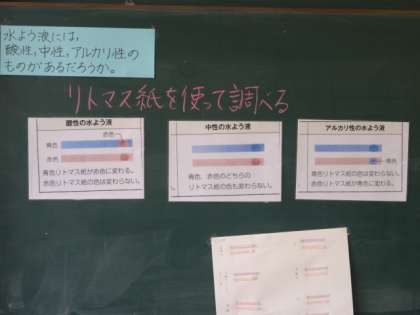 水よう液には,
酸性,中性,アルカリ性の
ものがあるだろうか。
リトマス紙を使って調べる
酸性の水よう液
赤色
青色
赤色
青色リトマス紙が赤色に変わる。
赤色リトマス紙の色は変わらない。
中性の水よう液
青色、赤色のどちらの
リトマス紙の色も変わらない。
アルカリ性の水よう液
青色
青色リトマス紙の色は変わらない。
赤色リトマス紙が青色に変わる。